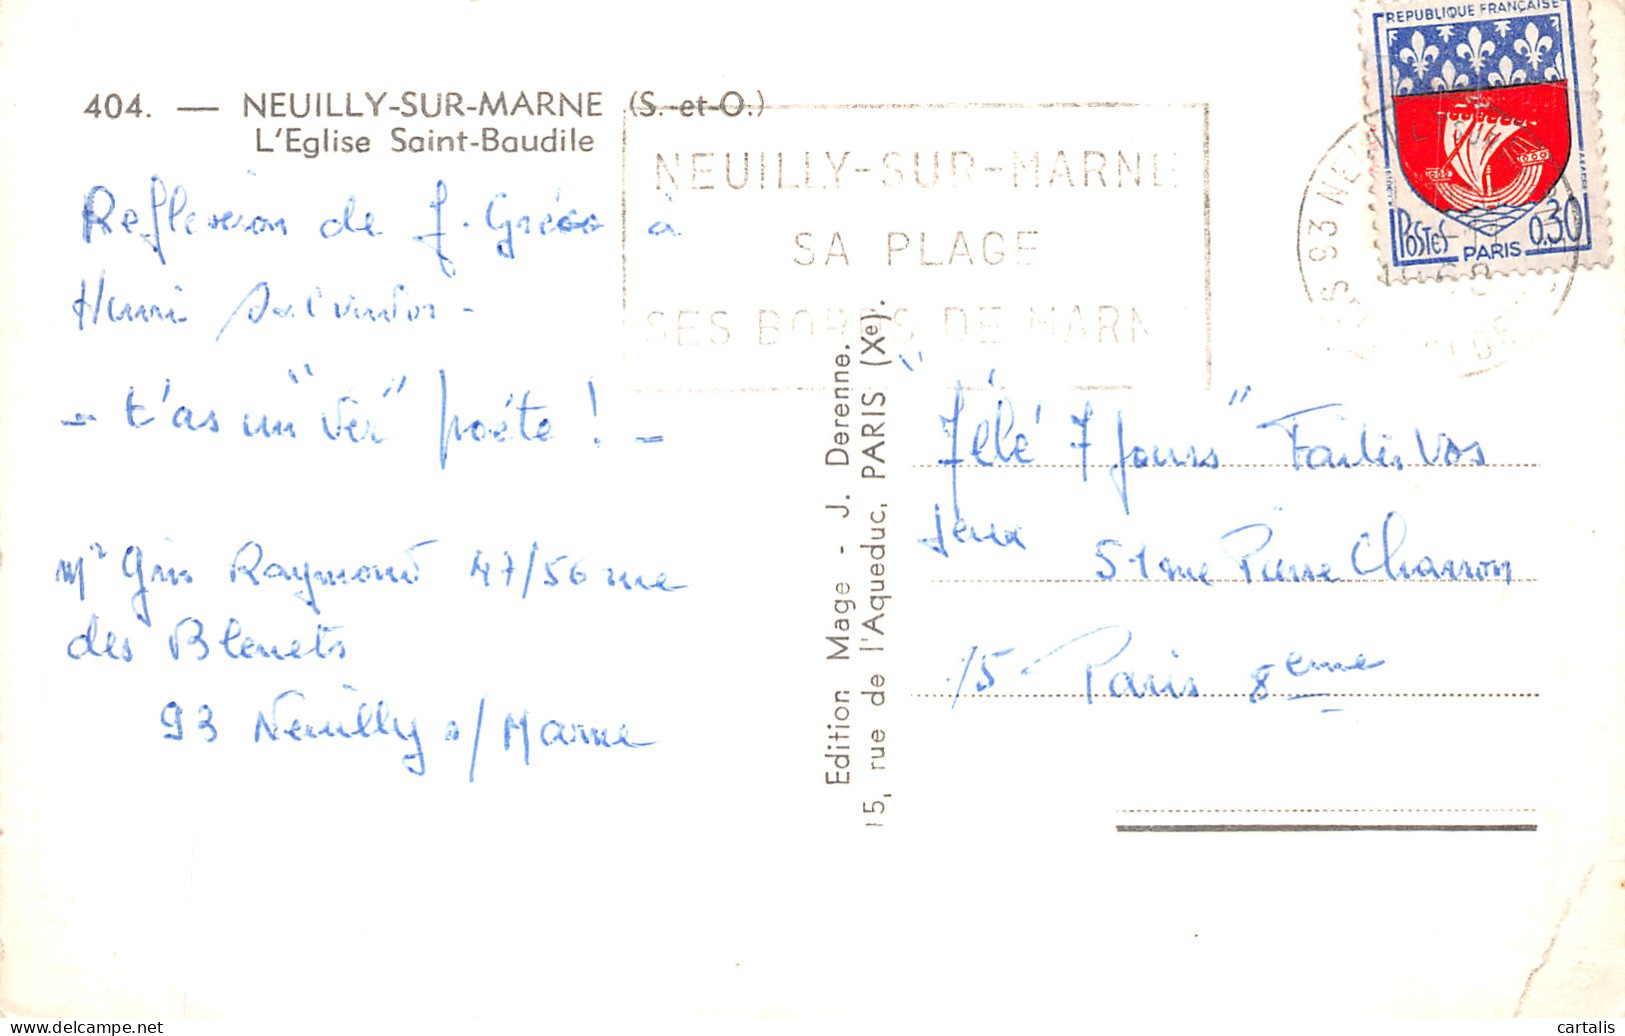 404. — NEUILLY-SUR-MARNE (S.-et-O.)
L'Eglise Saint-Baudile
NEUILLY-SUR-MARNE
SA PLAGE
SES BORDS DE MARN
REPUBLIQUE FRANÇAISE
POSTES
PARIS
0,30
93 NEUI
Reflexion de J. Gréco à
Henri Salvador -
- t'as un "ver" poéte ! -
Mr Gris Raymond 47/56 rue
des Bleuets
93 Neuilly s/ Marne
Edition Mage - J. Derenne.
15, rue de l'Aqueduc, PARIS (Xe).
"Télé 7 Jours" Faites vos
Jeux
51 rue Pierre Charron
15 - Paris 8eme
cartalis